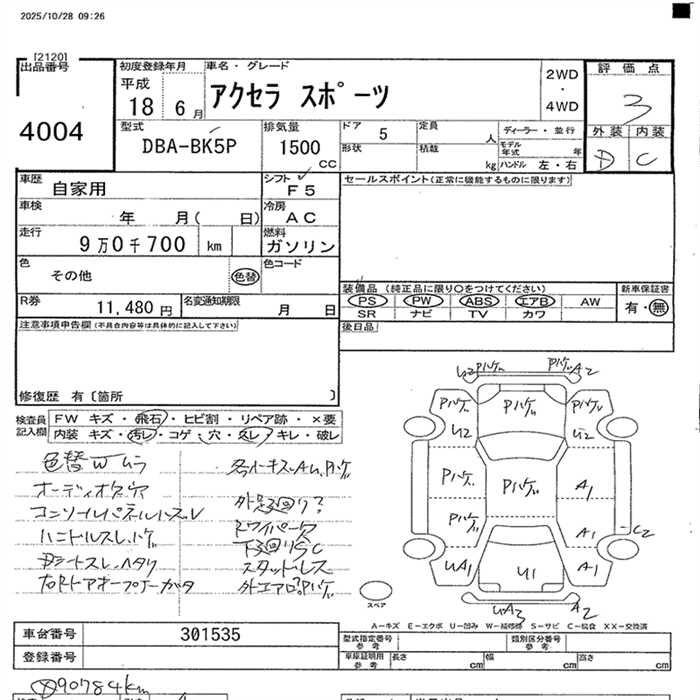 2025/10/28 09:26
[2120]
出品番号
4004
初度登録年月
平成
18 6月
車名・グレード
アクセラ スポーツ
2WD
・
4WD
評価点
3
外装 内装
D C
型式
DBA-BK5P
排気量
1500
CC
ドア 5
定員 人
形状
積載 kg
ディーラー・並行
モデル年式 年
ハンドル 左・右
車歴
自家用
シフト
F5
車検
年 月( 日)
冷房
AC
走行
9万0千700 km
燃料
ガソリン
色
その他
色替
色コード
R券
11,480円
名変通知期限
月 日
セールスポイント(正常に機能するものに限ります)
装備品 (純正品に限り○をつけてください)
PS PW ABS エアB AW
SR ナビ TV カワ
新車保証書
有・無
後日品
注意事項申告欄(不具合内容等は具体的に記入して下さい)
修復歴 有〔箇所 〕
検査員記入欄
FW キズ・飛石・ヒビ割・リペア跡・×要
内装 キズ・汚レ・コゲ・穴・スレ・キレ・破レ
色替Wムラ
オーディオ欠
コンソールパネルハズレ
ハンドルスレ、ハゲ
スタッドレス
U2 Pハゲ
Pハゲ A2
Pハゲ Pハゲ Pハゲ
U2 U2
Pハゲ Pハゲ A1
Pハゲ A1 C2
UA1 U1 A1
UA3 A2
スペア
A−キズ E−エクボ U−凹み W−補修跡 S−サビ C−腐食 XX−交換済
車台番号
301535
登録番号
型式指定番号
参考
類別区分番号
参考
車庫証明用
参考
長さ cm
幅 cm
高さ cm
90784km